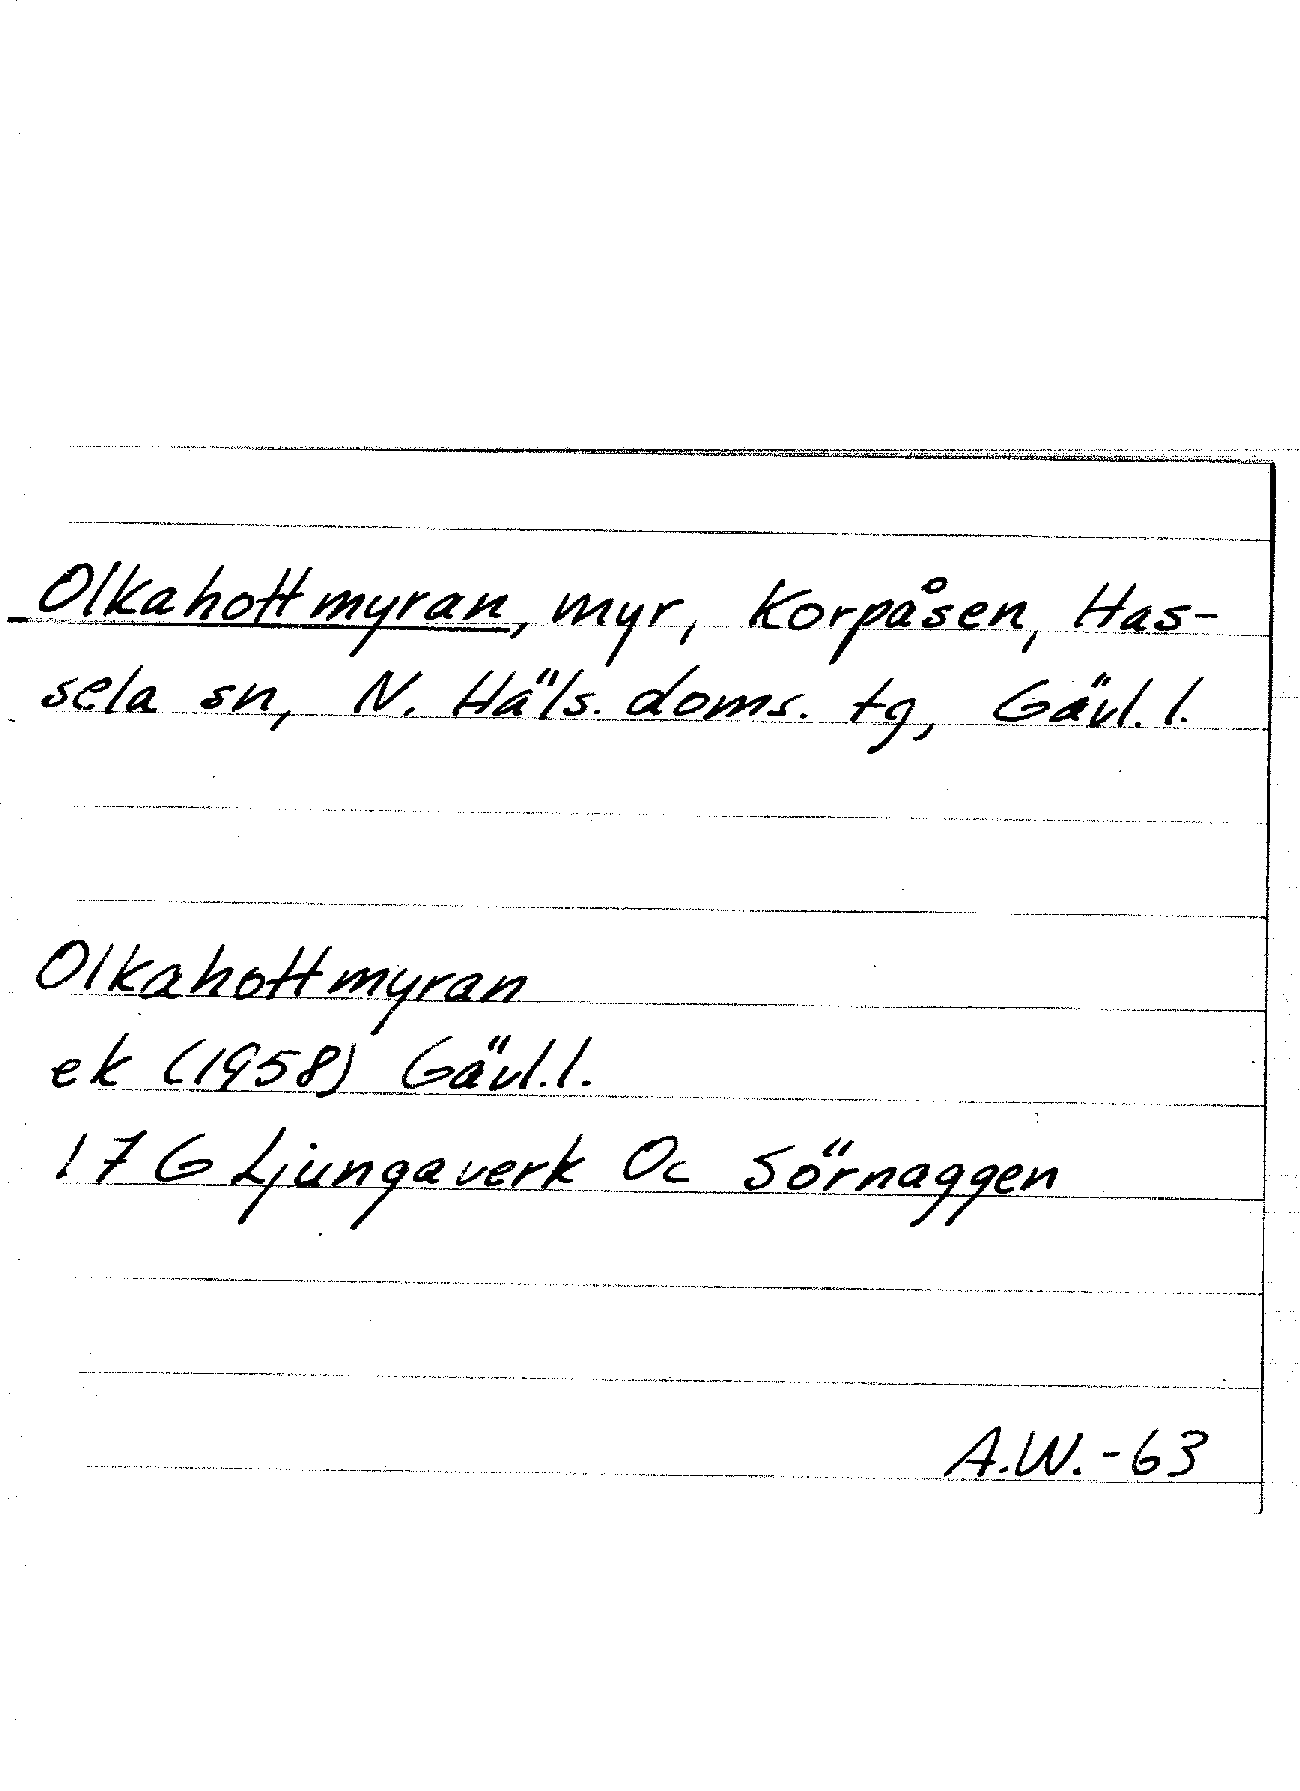 Olkahottmyran, myr, Korpåsen, Has-
sela sn, N. Häls. doms. tg, Gävl. l.
Olkahottmyran
ek (1958) Gävl. l.
17 G Ljungaverk Oc Sörnaggen
A.W. -63